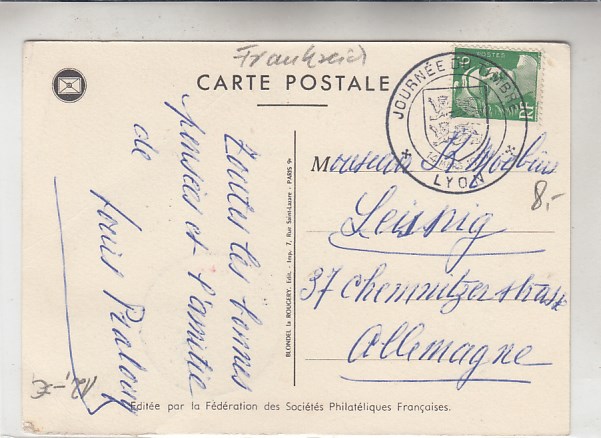 Frankreich
CARTE POSTALE
POSTES
RF
JOURNÉE DU TIMBRE
LYON
8,-
Toutes les bonnes
pensées et l'amitié
de
Louis
Monsieur R. Moebius
Leisnig
37 Chemnitzerstrasse
Allemagne
BLONDEL la ROUGERY, Edit. - Imp. 7, Rue Saint-Lazare - PARIS 9e
12,-€
Editée par la Fédération des Sociétés Philatéliques Françaises.